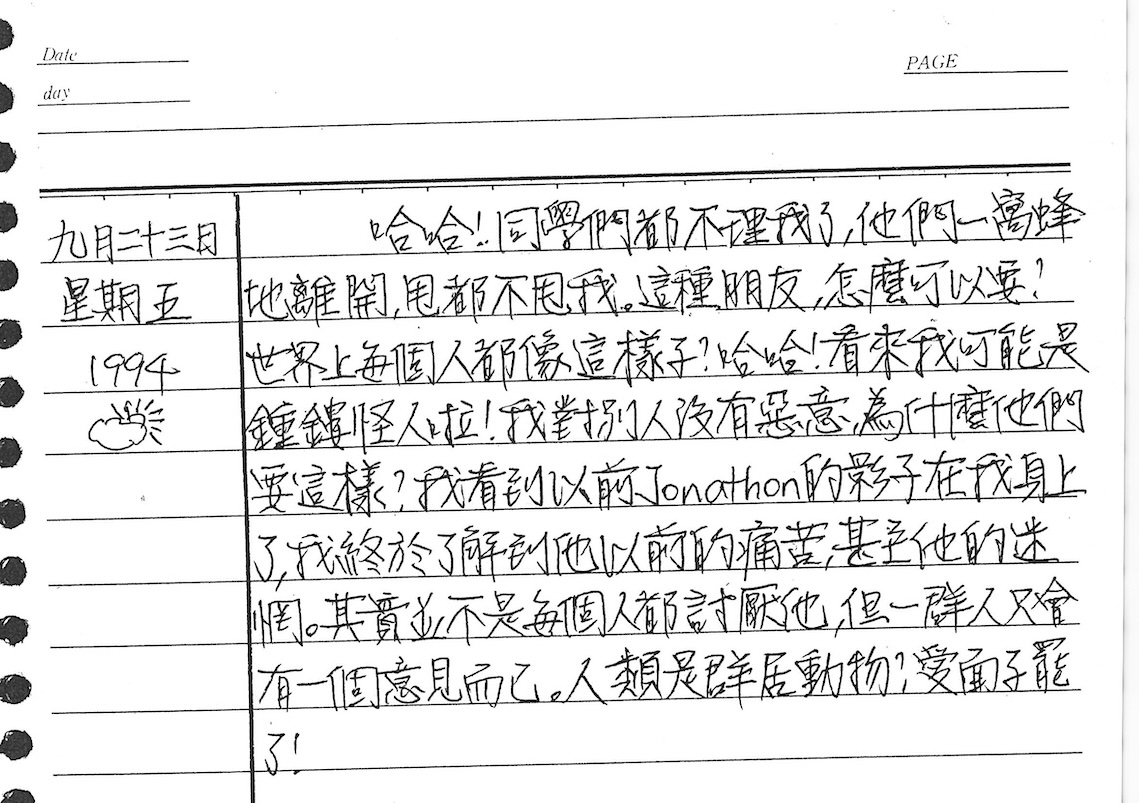 Date
PAGE
day
九月二十三日
星期五
1994
哈哈!同學們都不理我了,他們一窩蜂
地離開,甩都不甩我。這種朋友,怎麼可以要?
世界上每個人都像這樣子?哈哈!看來我可能是
鐘鏤怪人啦!我對別人沒有惡意,為什麼他們
要這樣?我看到以前Jonathon的影子在我身上
了,我終於了解到他以前的痛苦,甚至他的迷
惘。其實並不是每個人都討厭他,但一群人只會
有一個意見而已。人類是群居動物?愛面子罷
了!